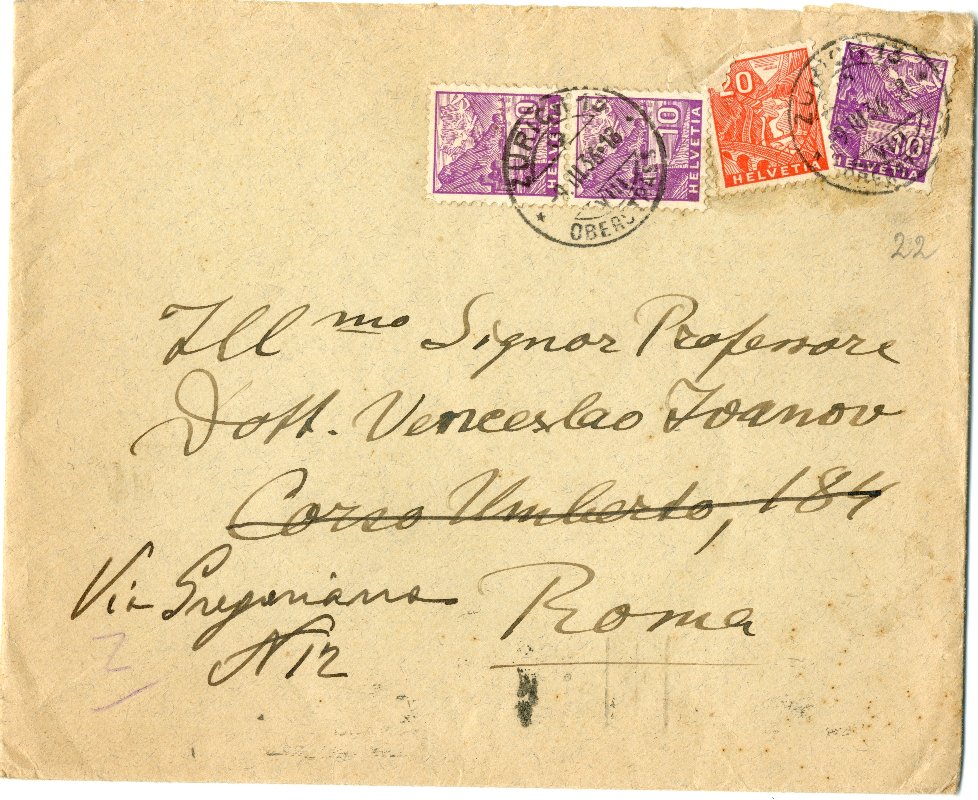 10
HELVETIA
10
HELVETIA
20
HELVETIA
10
HELVETIA
ZÜRICH 15
VIII
OBERSTRASS
ZÜRICH 15
VIII
22
Ill mo Signor Professore
Dott. Venceslao Ivanov
Corso Umberto, 184
Via Gregoriana
N 12
Roma
Z